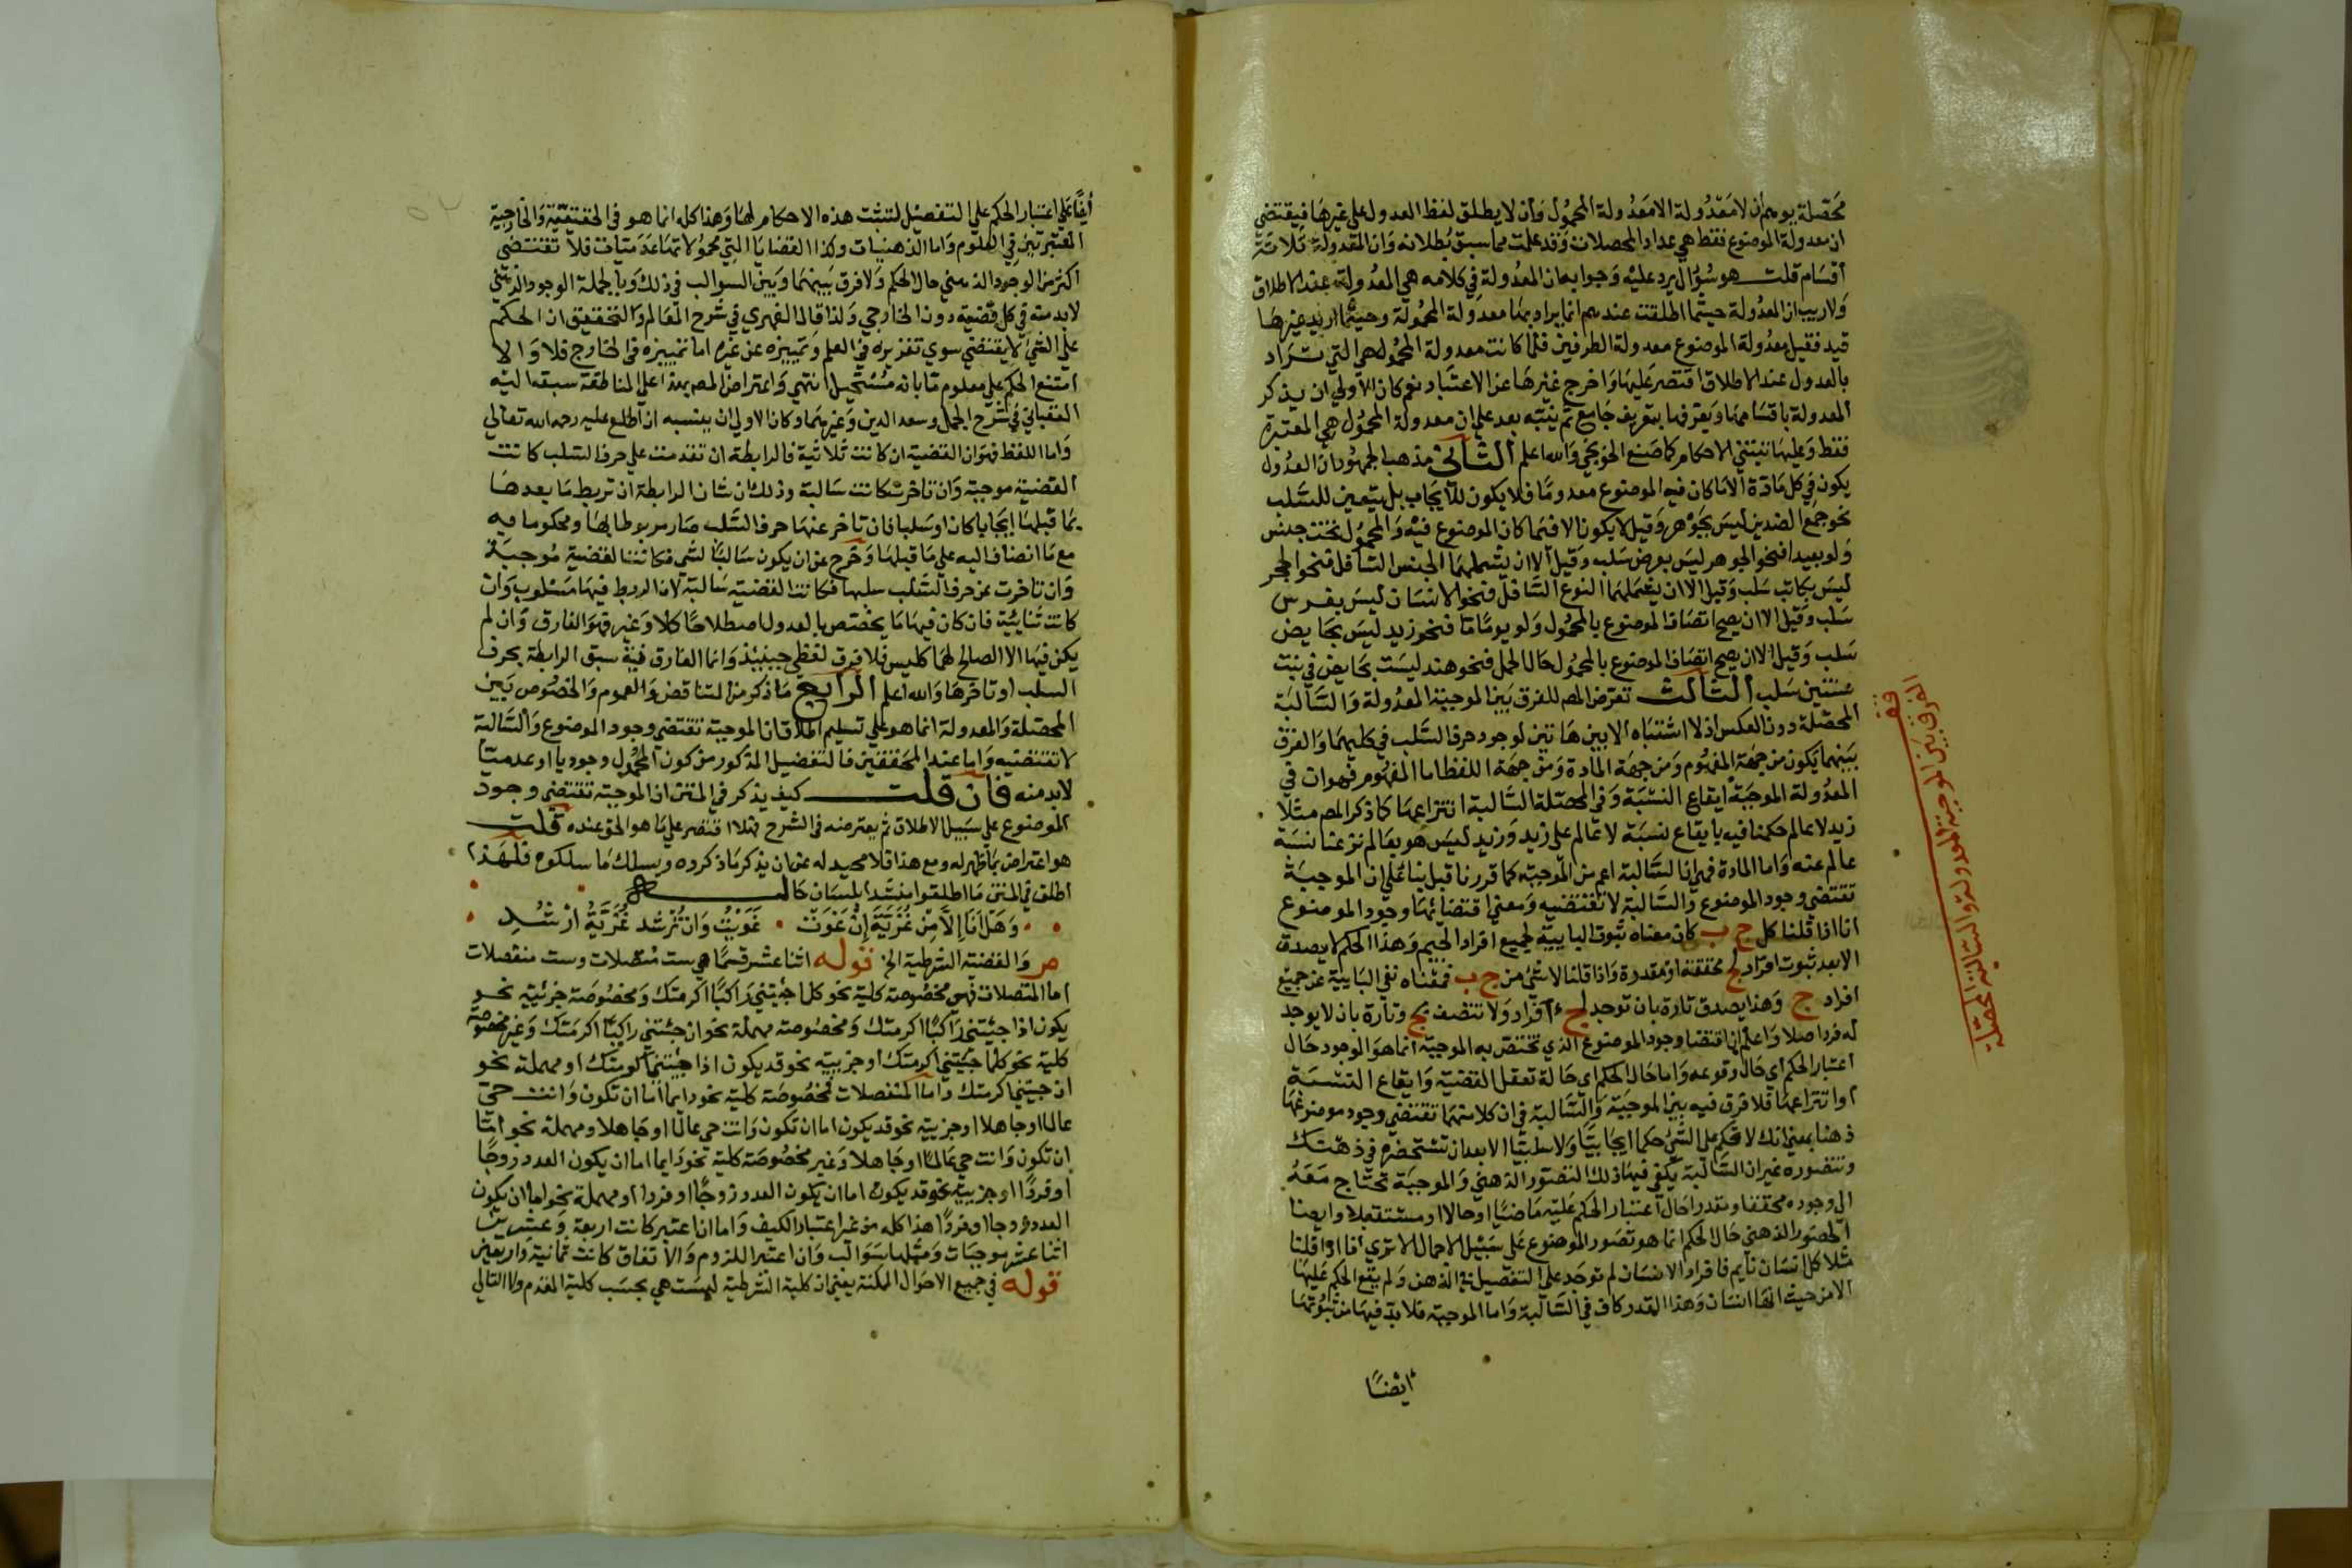 محصلة يوهم أن لا معدولة الا معدولة المحمول وأن لا يطلق لفظ العدول على غيرها فيقتضي
ان معدولة الموضوع فقط هي عداد المحصلات وقد علمت مما سبق بطلانه وان المعدولة ثلاثة
أقسام قلت هو سؤال يرد عليه وجوابه ان المعدولة في كلامه هي المعدولة عند الاطلاق
ولا ريب ان المعدولة حيثما اطلقت عندهم انما يراد بها معدولة المحمول وحيثما اريد غيرها
قيد فقيل معدولة الموضوع معدولة الطرفين فلما كانت معدولة المحمول هي التي تراد
بالعدول عند الاطلاق اقتصر عليها واخرج غيرها عن الاعتبار نعم كان الاولى ان يذكر
المعدولة باقسامها ويعرفها بتعريف جامع ثم ينبه بعد على ان معدولة المحمول هي المعتبرة
فقط وعليها تنبني الاحكام كما صنع الخونجي والله اعلم الثاني مذهب الجمهور ان العدول
يكون في كل مادة الا ما كان فيه الموضوع معدوما فلا يكون للايجاب بل يتعين للسلب
نحو جمع الضدين ليس بجوهر وقيل لا يكون الا فيما كان الموضوع فيه والمحمول تحت جنس
ولو بعيدا فنحو الجوهر ليس بعرض سلبه وقيل الا ان يشملهما الجنس السافل فنحو الحجر
ليس بكاتب سلب وقيل الا ان يشملهما النوع السافل فنحو الانسان ليس بفرس
سلب وقيل الا ان يصح اتصاف الموضوع بالمحمول ولو يوما ما فنحو زيد ليس بحايض
سلب وقيل الا ان يصح اتصاف الموضوع بالمحمول حال الحمل فنحو هند ليست بحايض في بنت
سنتين سلب الثالث تعرض المص للفرق بين الموجبة المعدولة والسالبة
المحصلة دون العكس اذ لا اشتباه الا بين هاتين لوجود حرف السلب في كليهما والفرق
بينهما يكون من جهة المفهوم ومن جهة المادة ومن جهة اللفظ اما المفهوم فهو ان في
المعدولة الموجبة ايقاع النسبة وفي المحصلة السالبة انتزاعها كما ذكر المص مثلا
زيد لا عالم حكمنا فيه بايقاع نسبة لا عالم على زيد وزيد ليس هو بعالم نزعنا نسبة
عالم عنه واما المادة فهي ان السالبة اعم من الموجبة كما قررنا قبل بناء على ان الموجبة
تقتضي وجود الموضوع والسالبة لا تقتضيه ومعنى اقتضائها وجود الموضوع
انا اذا قلنا كل ج ب كان معناه ثبوت البايية لجميع افراد الجيم وهذا الحكم لا يصدق
الا بعد ثبوت افراد لج محققة او مقدرة واذا قلنا لا شئ من ج ب فمعناه نفي البايية عن جميع
افراد ج وهذا يصدق تارة بان توجد لج افراد ولا تتصف بب وتارة بان لا يوجد
له فرد اصلا واعلم ان اقتضا وجود الموضوع الذي تختص به الموجبة انما هو الوجود حال
اعتبار الحكم اي حال وقوعه واما حال الحكم اي حالة تعقل القضية وايقاع النسبة
او انتزاعها فلا فرق فيه بين الموجبة والسالبة في ان كلا منهما تقتضي وجود موضوعها
ذهنا بمعنى انك لا تحكم على الشئ حكما ايجابيا ولا سلبيا الا بعد ان تستحضره في ذهنك
وتتصوره غير ان السالبة يكفي فيها ذلك التصور الذهني والموجبة تحتاج معه
الى وجوده محققا او مقدرا حال اعتبار الحكم عليه ماضيا او حالا او مستقبلا وايضا
الحضور الذهني حال الحكم انما هو تصور الموضوع على سبيل الاجمال الا ترى انا اذا قلنا
مثلا كل انسان نايم فافراد الانسان لم توجد على التفصيل في الذهن ولم يقع الحكم عليها
الا من حيث انها انسان وهذا القدر كاف في السالبة واما الموجبة فلا بد فيها من ثبوتها
ايضا
قف
الفرق بين الموجبة المعدولة والسالبة المحصلة
ايضا على اعتبار الحكم على التفصيل لتثبت هذه الاحكام لها وهذا كله انما هو في الحقيقية والخارجية
المعتبرتين في العلوم واما الذهنيات وكذا القضايا التي محمولاتها عدميات فلا تقتضي
اكثر من الوجود الذهني حال الحكم ولا فرق بينهما وبين السوالب في ذلك وبالجملة الوجود الذهني
لا بد منه في كل قضية دون الخارجي ولذا قال الفهري في شرح المعالم والتحقيق ان الحكم
على الشئ لا يقتضي سوى تقرره في العلم وتمييزه عن غيره اما تمييزه في الخارج فلا والا
امتنع الحكم على معلوم ما بانه مستحيل انتهى واعتراض المص بهذا على المناطقة سبقه اليه
العقباني في شرح الجمل وسعد الدين وغيرهما وكان الاولى ان ينسبه ان اطلع عليه رحمه الله تعالى
واما اللفظ فهو ان القضية ان كانت ثلاثية فالرابطة ان تقدمت على حرف السلب كانت
القضية موجبة وان تاخرت كانت سالبة وذلك ان شان الرابطة ان تربط ما بعدها
بما قبلها ايجابا كان او سلبا فان تاخر عنها حرف السلب صار مربوطا بها ومحكوما به
مع ما انضاف اليه على ما قبلها وخرج عن ان يكون سالبا لشئ فكانت القضية موجبة
وان تاخرت عن حرف السلب سلبها فكانت القضية سالبة لان الربط فيها مسلوب وان
كانت ثنايية فان كان فيها ما يختص بالعدول اصطلاحا كلا وغير فهو الفارق وان لم
يكن فيها الا الصالح لهما كليس فلا فرق لفظي حينئذ وانما الفارق فيه سبق الرابطة بحرف
السلب او تاخرها والله اعلم الرابع ما ذكر من التناقض والعموم والخصوص بين
المحصلة والمعدولة انما هو على تسليم اطلاق ان الموجبة تقتضي وجود الموضوع والسالبة
لا تقتضيه واما عند المحققين فالتفصيل المذكور من كون المحمول وجوديا او عدميا
لا بد منه فان قلت كيف يذكر في المتن ان الموجبة تقتضي وجود
الموضوع على سبيل الاطلاق ثم يعترضه في الشرح فهلا اقتصر على ما هو الحق عنده قلت
هو اعتراض بما ظهر له ومع هذا فلا محيد له عن ان يذكر ما ذكروه ويسلك ما سلكوه فلهذا
اطلق في المتن ما اطلقوا منشدا بلسان حاله
وهل انا الا من غزية ان غوت غويت وان ترشد غزية ارشد
ص والقضية الشرطية الخ قوله اثنا عشر قسما هي ست متصلات وست منفصلات
اما المتصلات فهي مخصوصة كلية نحو كلما جئتني راكبا اكرمتك ومخصوصة جزئية نحو
يكون اذا جئتني راكبا اكرمتك ومخصوصة مهملة نحو ان جئتني راكبا اكرمتك وغير مخصوصة
كلية نحو كلما جئتني اكرمتك او جزيية نحو قد يكون اذا جئتني اكرمتك او مهملة نحو
ان جيتني اكرمتك واما المنفصلات فمخصوصة كلية نحو دايما اما ان تكون وانت حي
عالما او جاهلا او جزيية نحو قد يكون اما ان تكون وانت حي عالما او جاهلا ومهملة نحو اما
ان تكون وانت حي عالما او جاهلا وغير مخصوصة كلية نحو دايما اما ان يكون العدد زوجا
او فردا او جزيية نحو قد يكون اما ان يكون العدد زوجا او فردا او مهملة نحو اما ان يكون
العدد زوجا او فردا هذا كله من غير اعتبار الكيف واما ان اعتبر كانت اربعة وعشرين
اثنا عشر موجبات ومثلها سوالب وان اعتبر اللزوم والاتفاق كانت ثمانية واربعين
قوله في جميع الاحوال الممكنة يعني ان كلية الشرطية ليست هي بحسب كلية المقدم ولا التالي